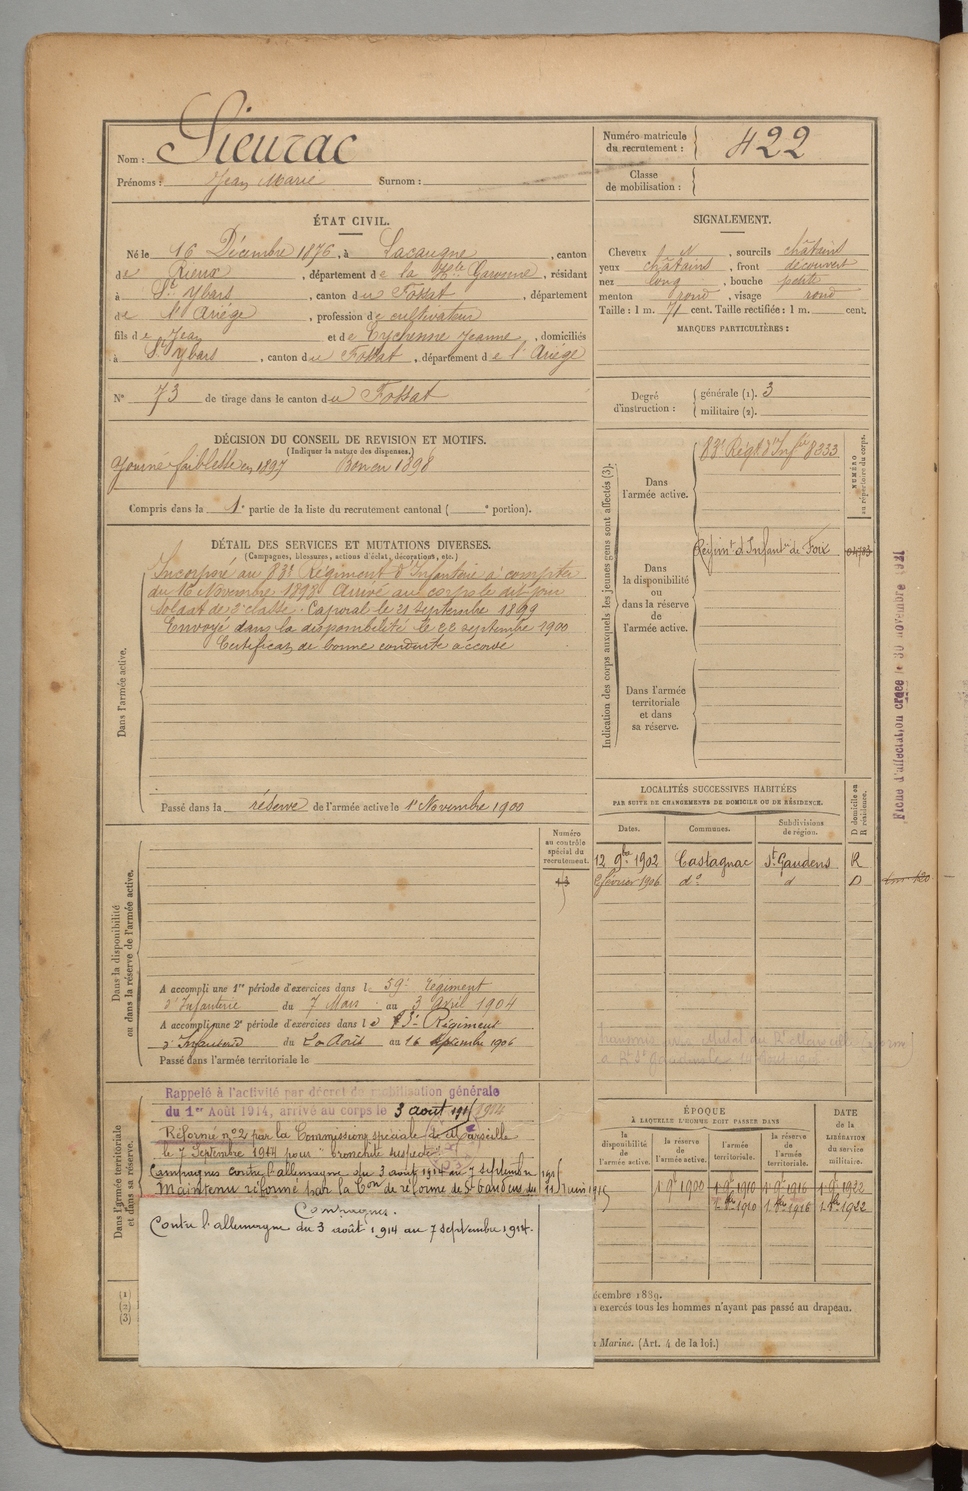 Nom : Sieuzac
Prénoms : Jean Marie Surnom :
Numéro matricule du recrutement : 422
Classe de mobilisation :
ÉTAT CIVIL.
Né le 16 Décembre 1876, à Lacaugne, canton
de Rieux, département de la Hte Garonne, résidant
à St Ybars, canton du Fossat, département
de l'Ariège, profession de cultivateur
fils de Jean et de Eychenne Jeanne, domiciliés
à St Ybars, canton du Fossat, département de l'Ariège
N° 73 de tirage dans le canton du Fossat
SIGNALEMENT.
Cheveux N, sourcils châtains
yeux châtains, front découvert
nez long, bouche petite
menton rond, visage rond
Taille : 1 m. 71 cent. Taille rectifiée : 1 m. cent.
MARQUES PARTICULIÈRES :
Degré d'instruction : générale (1). 3
militaire (2).
DÉCISION DU CONSEIL DE REVISION ET MOTIFS.
(Indiquer la nature des dispenses.)
Ajourné faiblesse en 1897 Bon en 1898
Compris dans la 1e partie de la liste du recrutement cantonal ( e portion).
DÉTAIL DES SERVICES ET MUTATIONS DIVERSES.
(Campagnes, blessures, actions d'éclat, décorations, etc.)
Dans l'armée active.
Incorporé au 83e Régiment d'Infanterie à compter
du 16 Novembre 1898. Arrivé au corps le dit jour
soldat de 2e classe. Caporal le 21 septembre 1899
Envoyé dans la disponibilité le 22 septembre 1900
Certificat de bonne conduite accordé
Passé dans la réserve de l'armée active le 1er Novembre 1900
Indication des corps auxquels les jeunes gens sont affectés (3).
NUMÉRO au répertoire du corps.
Dans l'armée active.
83e Régt d'Infie 8333
Dans la disponibilité ou dans la réserve de l'armée active.
Régimt d'Infanie de Foix
Dans l'armée territoriale et dans sa réserve.
Fiche d'affectation créée le 30 novembre 1921
LOCALITÉS SUCCESSIVES HABITÉES
PAR SUITE DE CHANGEMENTS DE DOMICILE OU DE RÉSIDENCE.
D domicile ou R résidence.
Dates. Communes. Subdivisions de région.
12 9bre 1902 Castagnac St Gaudens R
2 février 1906 do d D
Dans la disponibilité ou dans la réserve de l'armée active.
Numéro au contrôle spécial du recrutement.
A accompli une 1re période d'exercices dans le 59e Régiment
d'Infanterie du 7 Mars au 3 Avril 1904
A accompli une 2e période d'exercices dans le 83e Régiment
d'Infanterie du 20 Août au 16 septembre 1906
Passé dans l'armée territoriale le
Dans l'armée territoriale et dans sa réserve.
Rappelé à l'activité par décret de mobilisation générale
du 1er Août 1914, arrivé au corps le 3 août 1914
Réformé n°2 par la Commission spéciale de Marseille
le 7 Septembre 1914 pour "bronchite suspecte"
Campagnes contre l'allemagne du 3 août 1914 au 7 septembre 1914
Maintenu réformé par la Con de réforme de St Gaudens du 11 juin 1915
Campagnes.
Contre l'allemagne du 3 août 1914 au 7 septembre 1914.
ÉPOQUE
À LAQUELLE L'HOMME DOIT PASSER DANS
DATE de la LIBÉRATION du service militaire.
la disponibilité de l'armée active. la réserve de l'armée active. l'armée territoriale. la réserve de l'armée territoriale.
1 9bre 1900 1 9bre 1910 1 9bre 1916 1 9bre 1922
1. 8bre 1910 1. 8bre 1916 1. 8bre 1922
(1)
(2)
(3)
écembre 1889.
exercés tous les hommes n'ayant pas passé au drapeau.
Marine. (Art. 4 de la loi.)